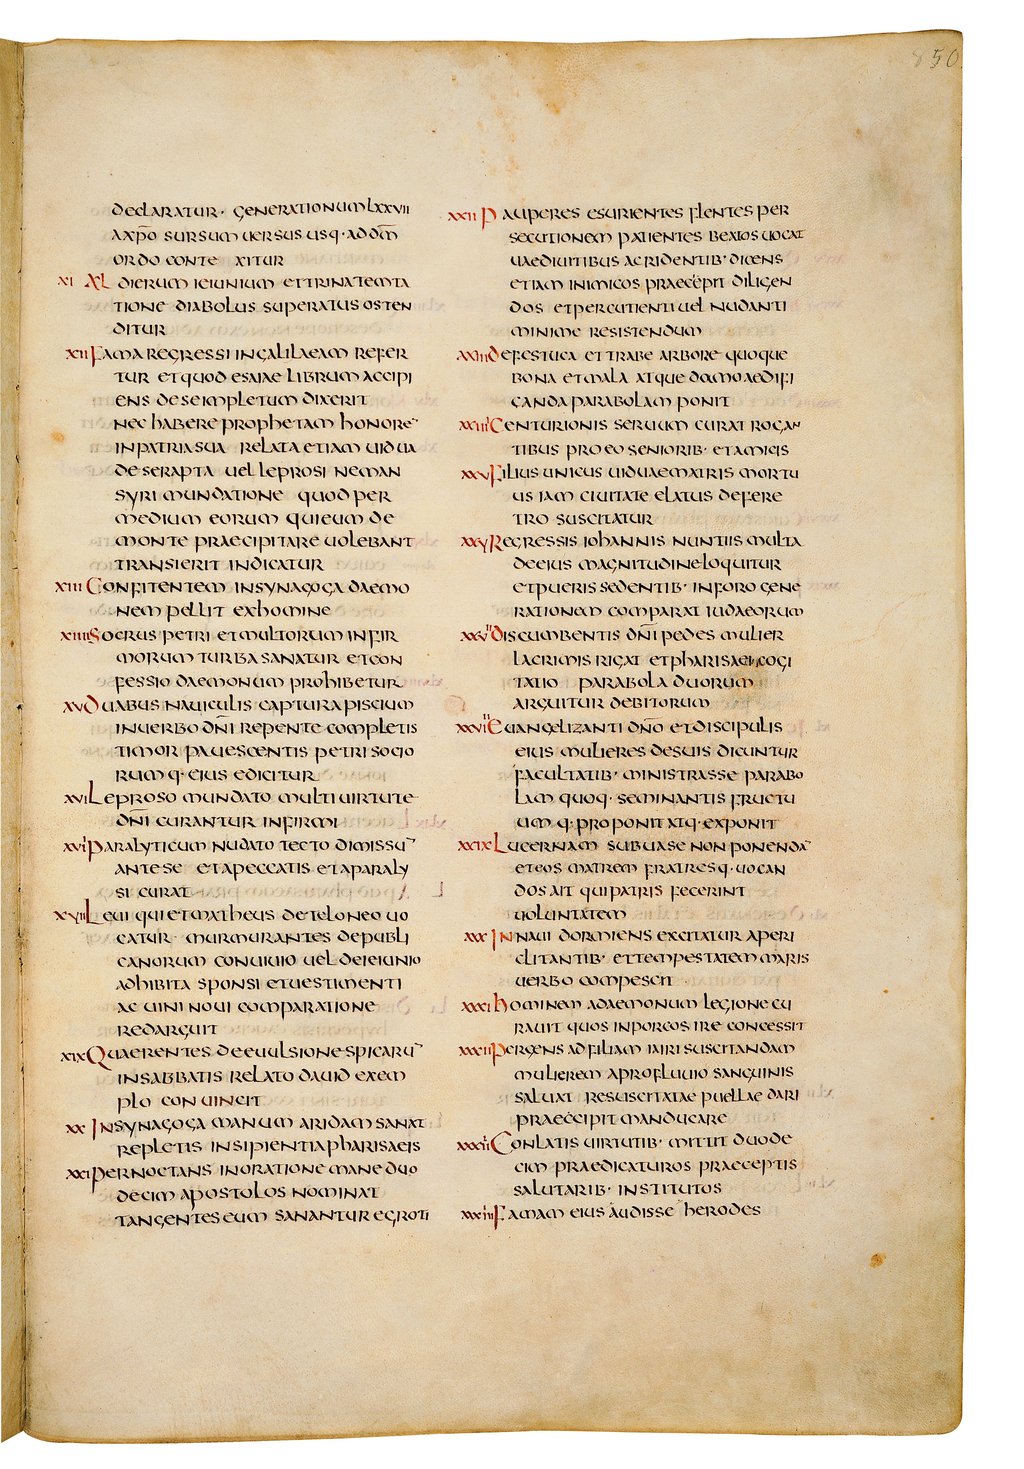 850
declaratur· generationum lxxvii
a xp̅o sursum uersus usq· ad dm̅
ordo conte xitur
xi xl dierum ieiunium et trina temta
tione diabolus superatus osten
ditur
xii Fama regressi in galilaeam refer
tur et quod esaiae librum accipi
ens de se impletum dixerit
nec habere prophetam honore
in patria sua relata etiam uidua
de serapta uel leprosi neman
syri mundatione quod per
medium eorum qui eum de
monte praecipitare uolebant
transierit indicatur
xiii Confitentem in synagoga daemo
nem pellit ex homine
xiiii Socrus petri et multorum infir
morum turba sanatur et con
fessio daemonum prohibetur
xv Duabus nauiculis captura piscium
in uerbo dn̅i repente completis
timor pauescentis petri socio
rumq· eius edicitur
xvi Leproso mundato multi uirtute
dn̅i curantur infirmi
xvii Paralyticum nudato tecto dimissu̅
ante se et a peccatis et a paraly
si curat
xviii Leui qui et matheus de teloneo uo
catur· murmurantes de publi
canorum conuiuio uel de ieiunio
adhibita sponsi et uestimenti
ac uini noui comparatione
redarguit
xix Quaerentes de euulsione spicaru̅
in sabbatis relato dauid exem
plo conuincit
xx In synagoga manum aridam sanat
repletis insipientia pharisaeis
xxi Pernoctans in oratione mane duo
decim apostolos nominat
tangentes eum sanantur egroti
xxii Pauperes esurientes flentes per
secutionem patientes beatos uocat
uae diuitibus ac ridentib· dicens
etiam inimicos praecepit diligen
dos et percutienti uel nudanti
minime resistendum
xxiii De festuca et trabe arbore quoque
bona et mala atque domo aedifi
canda parabolam ponit
xxiiii Centurionis seruum curat rogan
tibus pro eo seniorib· et amicis
xxv Filius unicus uiduae matris mortu
us iam ciuitate elatus de fere
tro suscitatur
xxvi Regressis iohannis nuntiis multa
de eius magnitudine loquitur
et pueris sedentib· in foro gene
rationem comparat iudaeorum
xxvii Discumbentis dn̅i pedes mulier
lacrimis rigat et pharisaei cogi
tatio parabola duorum
arguitur debitorum
xxviii Euangelizanti dn̅o et discipulis
eius mulieres de suis dicuntur
facultatib· ministrasse parabo
lam quoq· seminantis fructu
umq· proponit atq· exponit
xxix Lucernam sub uase non ponenda̅
et eos matrem fratresq· uocan
dos ait qui patris fecerint
uoluntatem
xxx In naui dormiens excitatur a peri
clitantib· et tempestatem maris
uerbo compescit
xxxi Hominem a daemonum legione cu
rauit quos in porcos ire concessit
xxxii Pergens ad filiam iairi suscitandam
mulierem a profluuio sanguinis
saluat resuscitatae puellae dari
praecepit manducare
xxxiii Conlatis uirtutib· mittit duode
cim praedicaturos praeceptis
salutarib· institutos
xxxiiii Famam eius audisse herodes